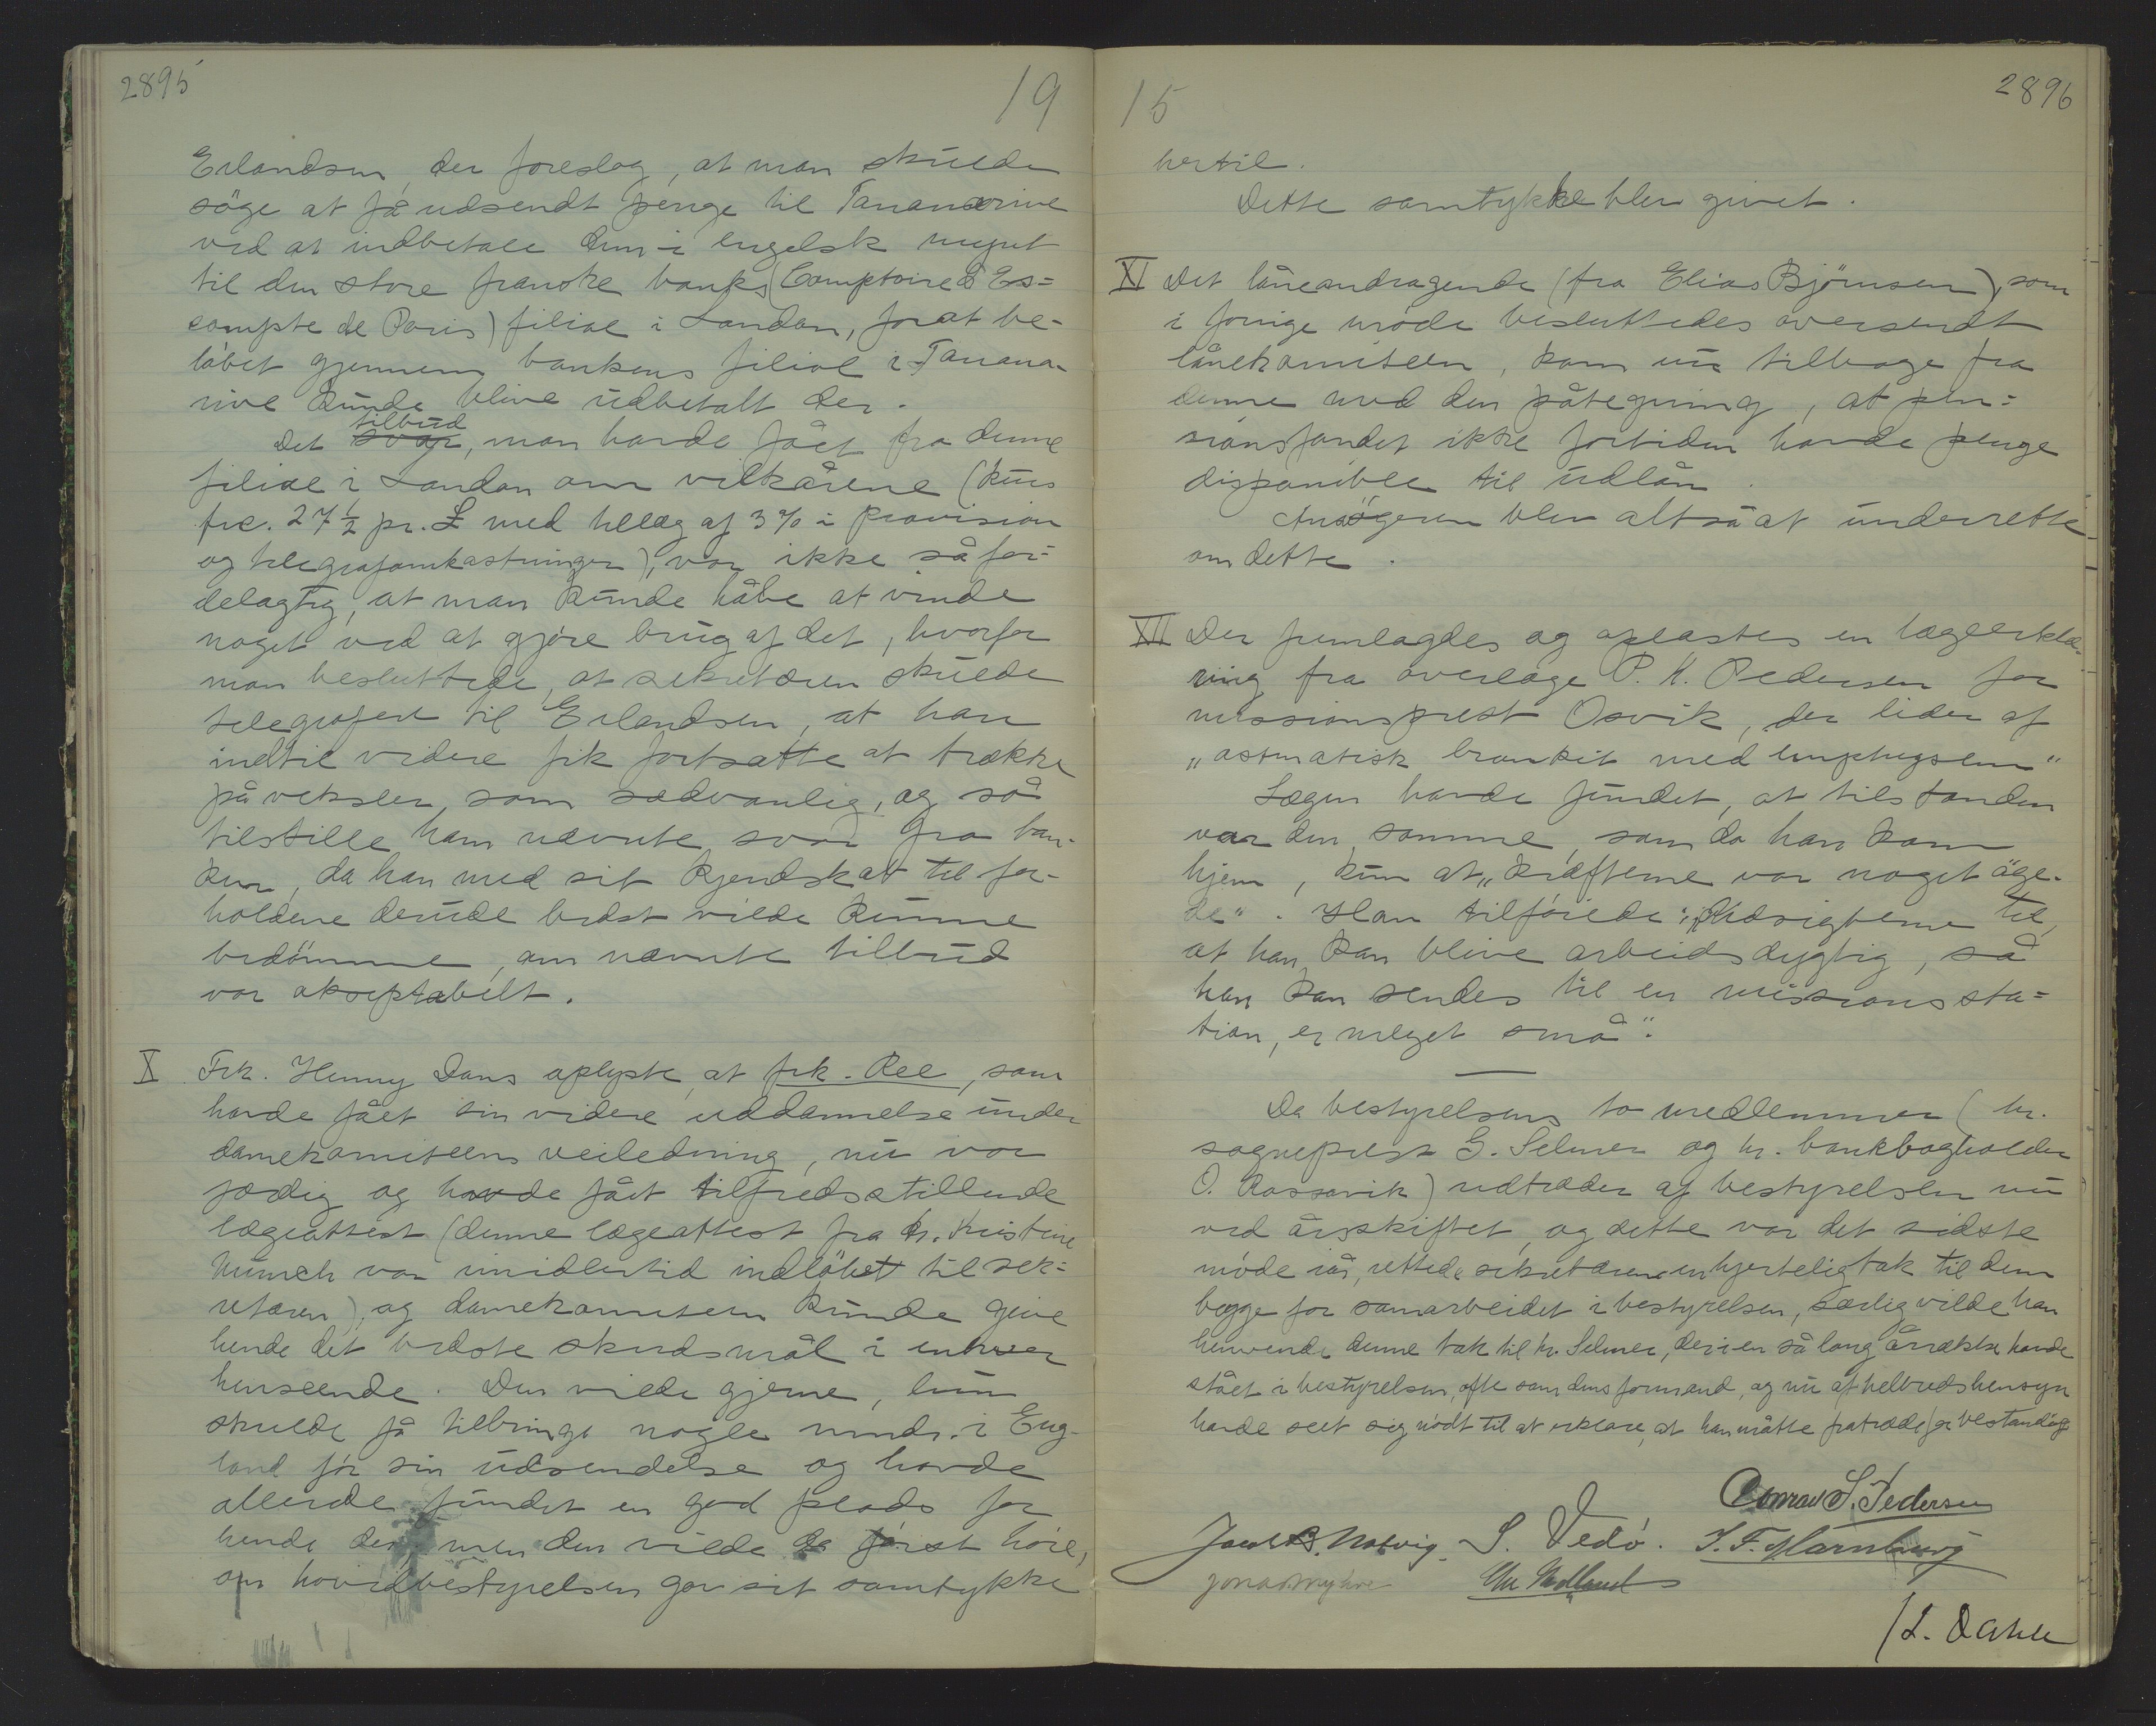 2895
19
Erlandsen, der foreslog, at man skulde
söge at få udsendt penge til Tananarive
ved at indbetale dem i engelsk mynt
til den store franske banks (Comptoire d'Es=
compte de Paris) filial i London, forat be-
löbet gjennem bankens filial i Tanana-
rive kunde blive udbetalt der.
tilbud
Det svar, man havde fået fra denne
filial i London om vilkårene (kurs
frc. 27 1/2 pr. £ med tillæg af 3 % i provision
og telegrafomkostninger), var ikke så for=
delagtig, at man kunde håbe at vinde
noget ved at gjöre brug af det, hvorfor
man besluttede, at sekretæren skulde
telegrafere til Erlandsen, at han
indtil videre fik fortsætte at trække
på veksler, som sædvanlig, og så
tilstille ham nævnte svar fra ban-
ken, da han med sit kjendskab til for-
holdene derude bedst vilde kunne
bedömme, om nævnte tilbud
var akseptabelt.
X Frk. Henny Dons oplyste, at frk. Ree, som
havde fået sin videre uddannelse under
damekomiteens veiledning, nu var
færdig og havde fået tilfredsstillende
lægeattest (denne lægeattest fra dr. Kristine
Munch var imidlertid indlöbet til sek=
retæren), og damekomiteen kunde give
hende det bedste skudsmål i enhver
henseende. Den vilde gjerne, hun
skulde få tilbringe nogle mndr. i Eng-
land för sin udsendelse og havde
allerede fundet en god plads for
hende der, men den vilde da först höre,
om hovedbestyrelsen gav sit samtykke
15
2896
hertil.
Dette samtykke blev givet.
XI Det låneandragende (fra Elias Björnsen), som
i forrige möde besluttedes oversendt
lånekomiteen, kom nu tilbage fra
denne med den påtegning, at pen=
sionsfondet ikke fortiden havde penge
disponible til udlån.
Ansögeren blev altså at underrette
om dette.
XII Der fremlagdes og oplæstes en lægeerklæ-
ring fra overlæge P. N. Pedersen for
missionsprest Osvik, der lider af
„astmatisk bronkit med emphysem"
Lægen havde fundet, at tilstanden
var den samme, som da han kom
hjem, kun at „kræfterne var noget äge-
de". Han tilföiede: „Udsigterne til,
at han kan blive arbeidsdygtig, så
han kan sendes til en missionssta=
tion, er meget små".
Da bestyrelsens to medlemmer (hr.
sogneprest G. Selmer og hr. bankbogholder
O. Rossavik) udtræder af bestyrelsen nu
ved årsskiftet, og dette var det sidste
möde iår, rettede sekretæren en hjertelig tak til dem
begge for samarbeidet i bestyrelsen, særlig vilde han
henvende denne tak til hr. Selmer, der i en så lang årrække havde
stået i bestyrelsen, ofte som dens formand, og nu af helbredshensyn
havde seet sig nödt til at erklære, at han måtte fratræde for bestandig.
Conrad S. Pedersen
Jacob B. Natvig. S. Vedö. S. F. Harnburg
Jonas Myhre Chr Molland
/L. Dahle